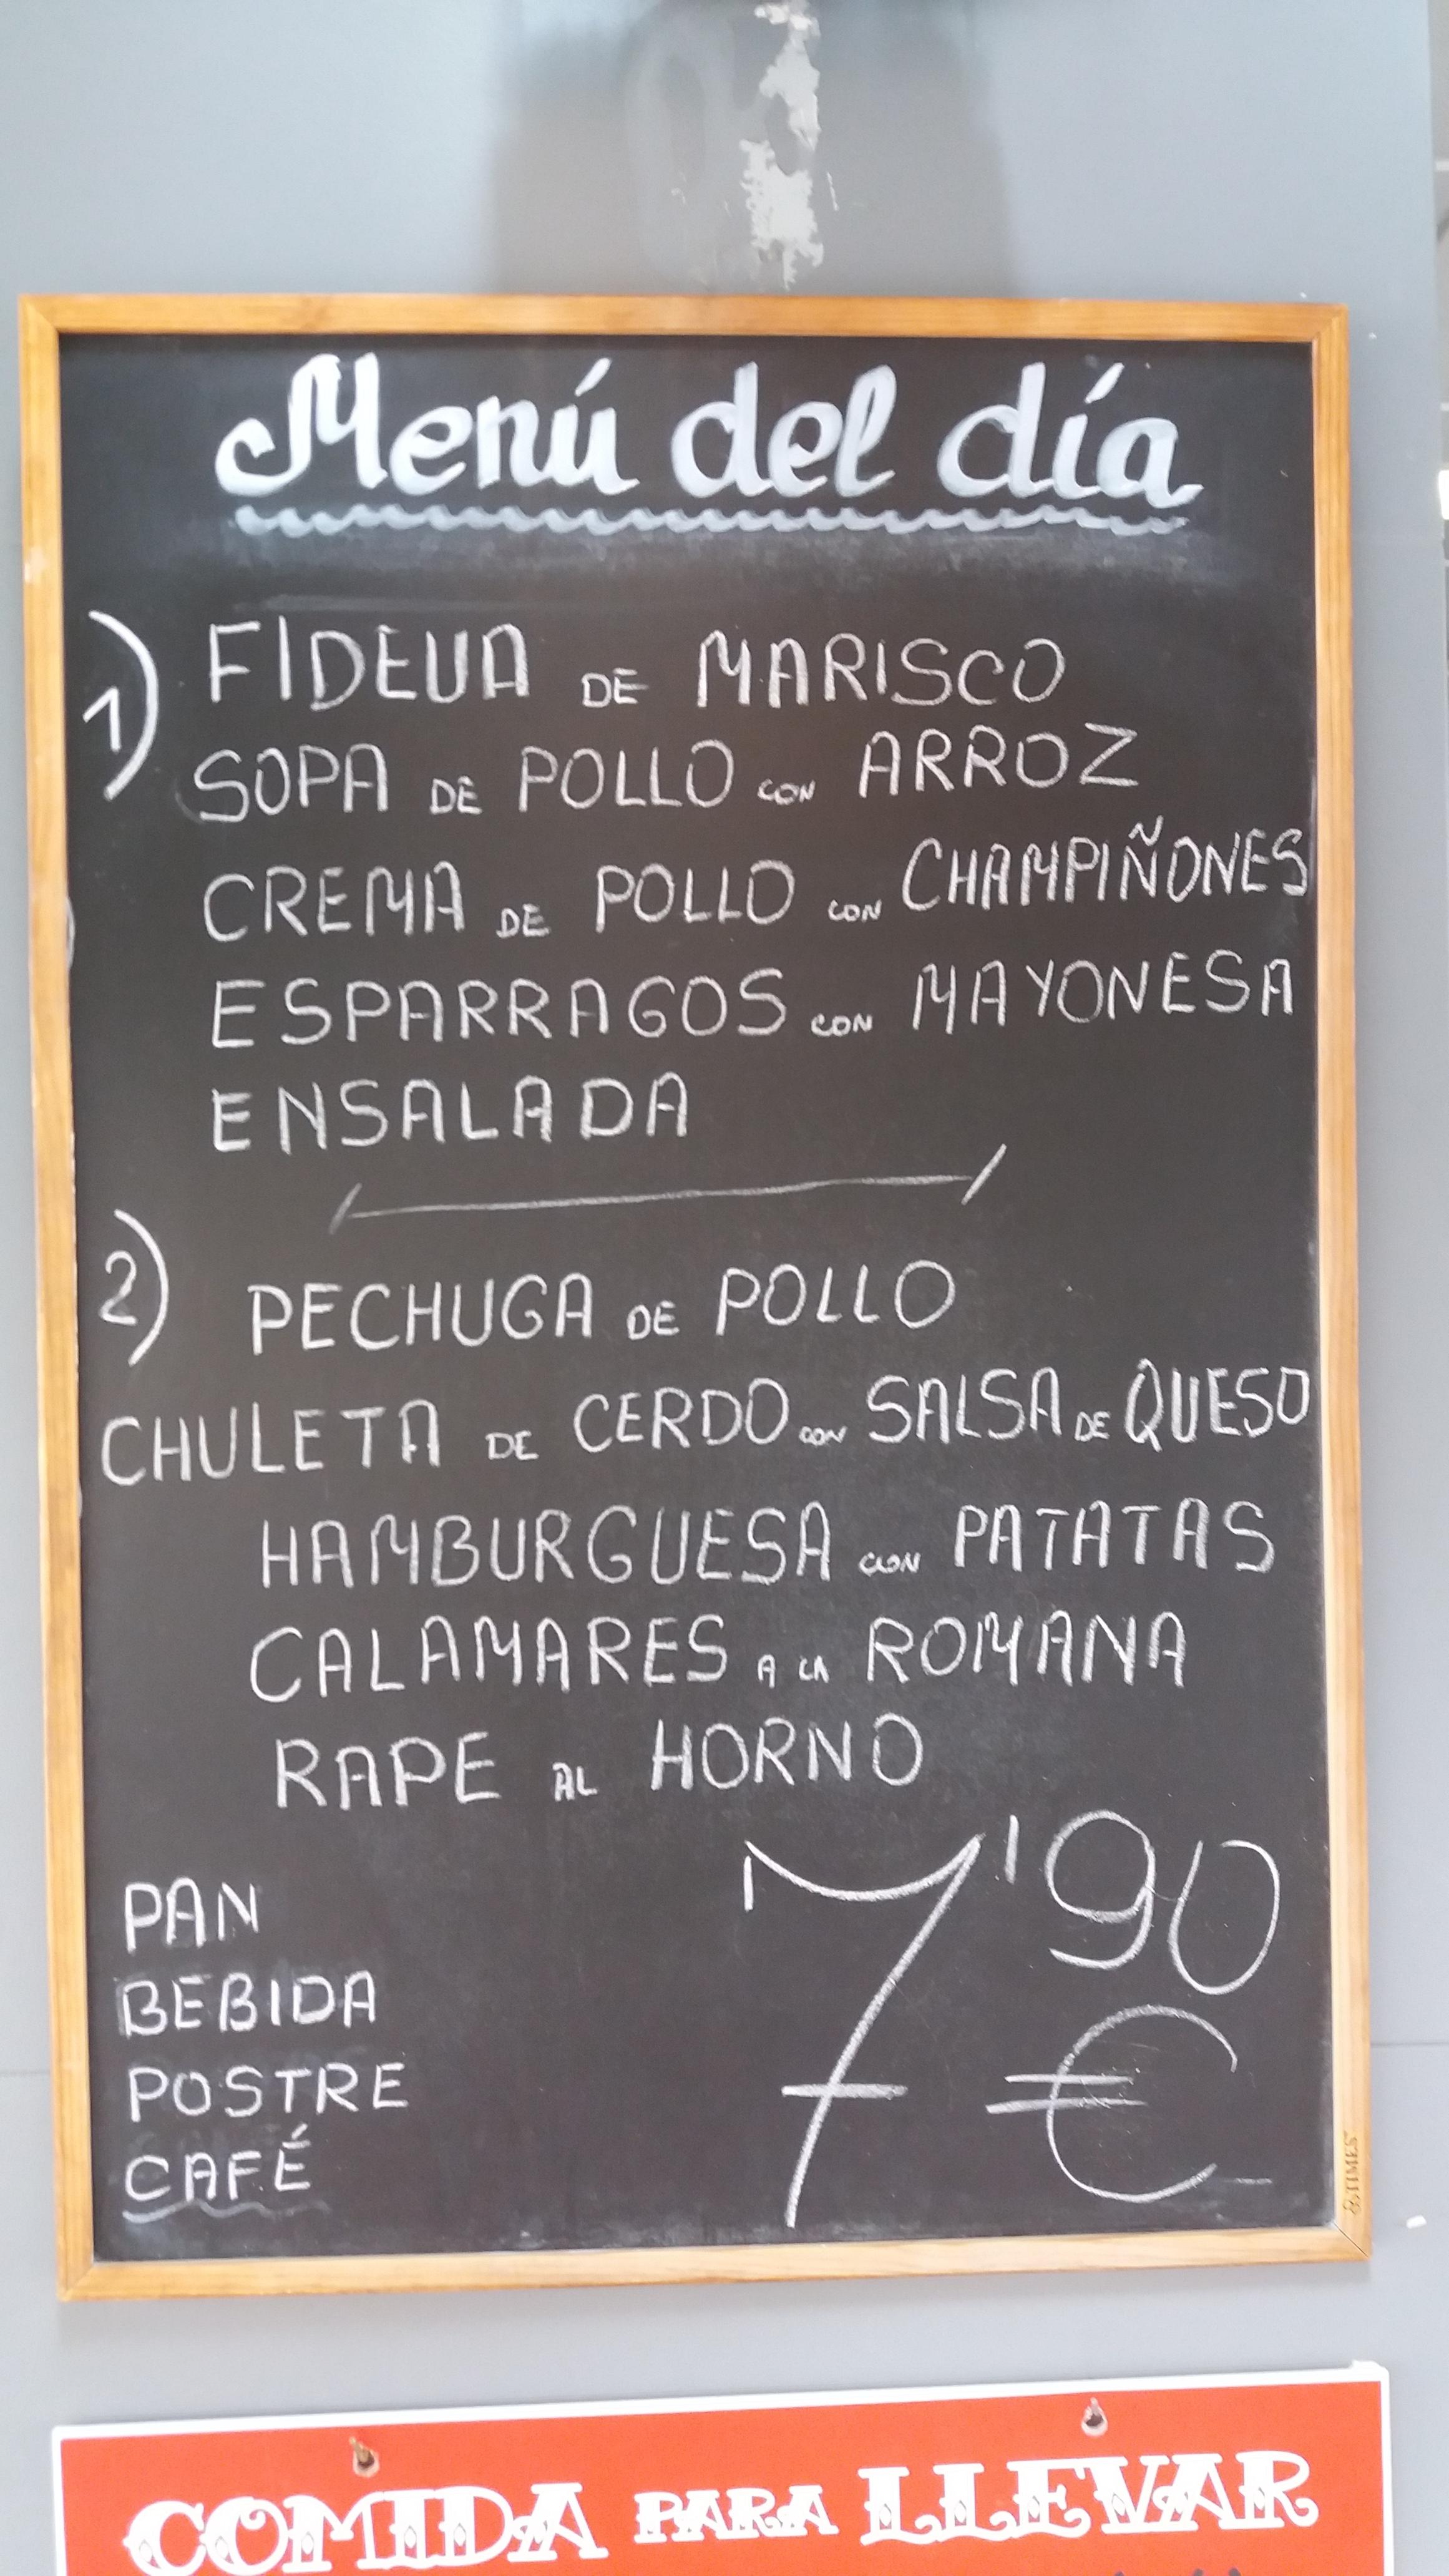 Menú del día
1) FIDEUA DE MARISCO
SOPA DE POLLO CON ARROZ
CREMA DE POLLO CON CHAMPIÑONES
ESPARRAGOS CON MAYONESA
ENSALADA
2) PECHUGA DE POLLO
CHULETA DE CERDO CON SALSA DE QUESO
HAMBURGUESA CON PATATAS
CALAMARES A LA ROMANA
RAPE AL HORNO
PAN
BEBIDA
POSTRE
CAFÉ
7'90 €
TIMES
COMIDA PARA LLEVAR